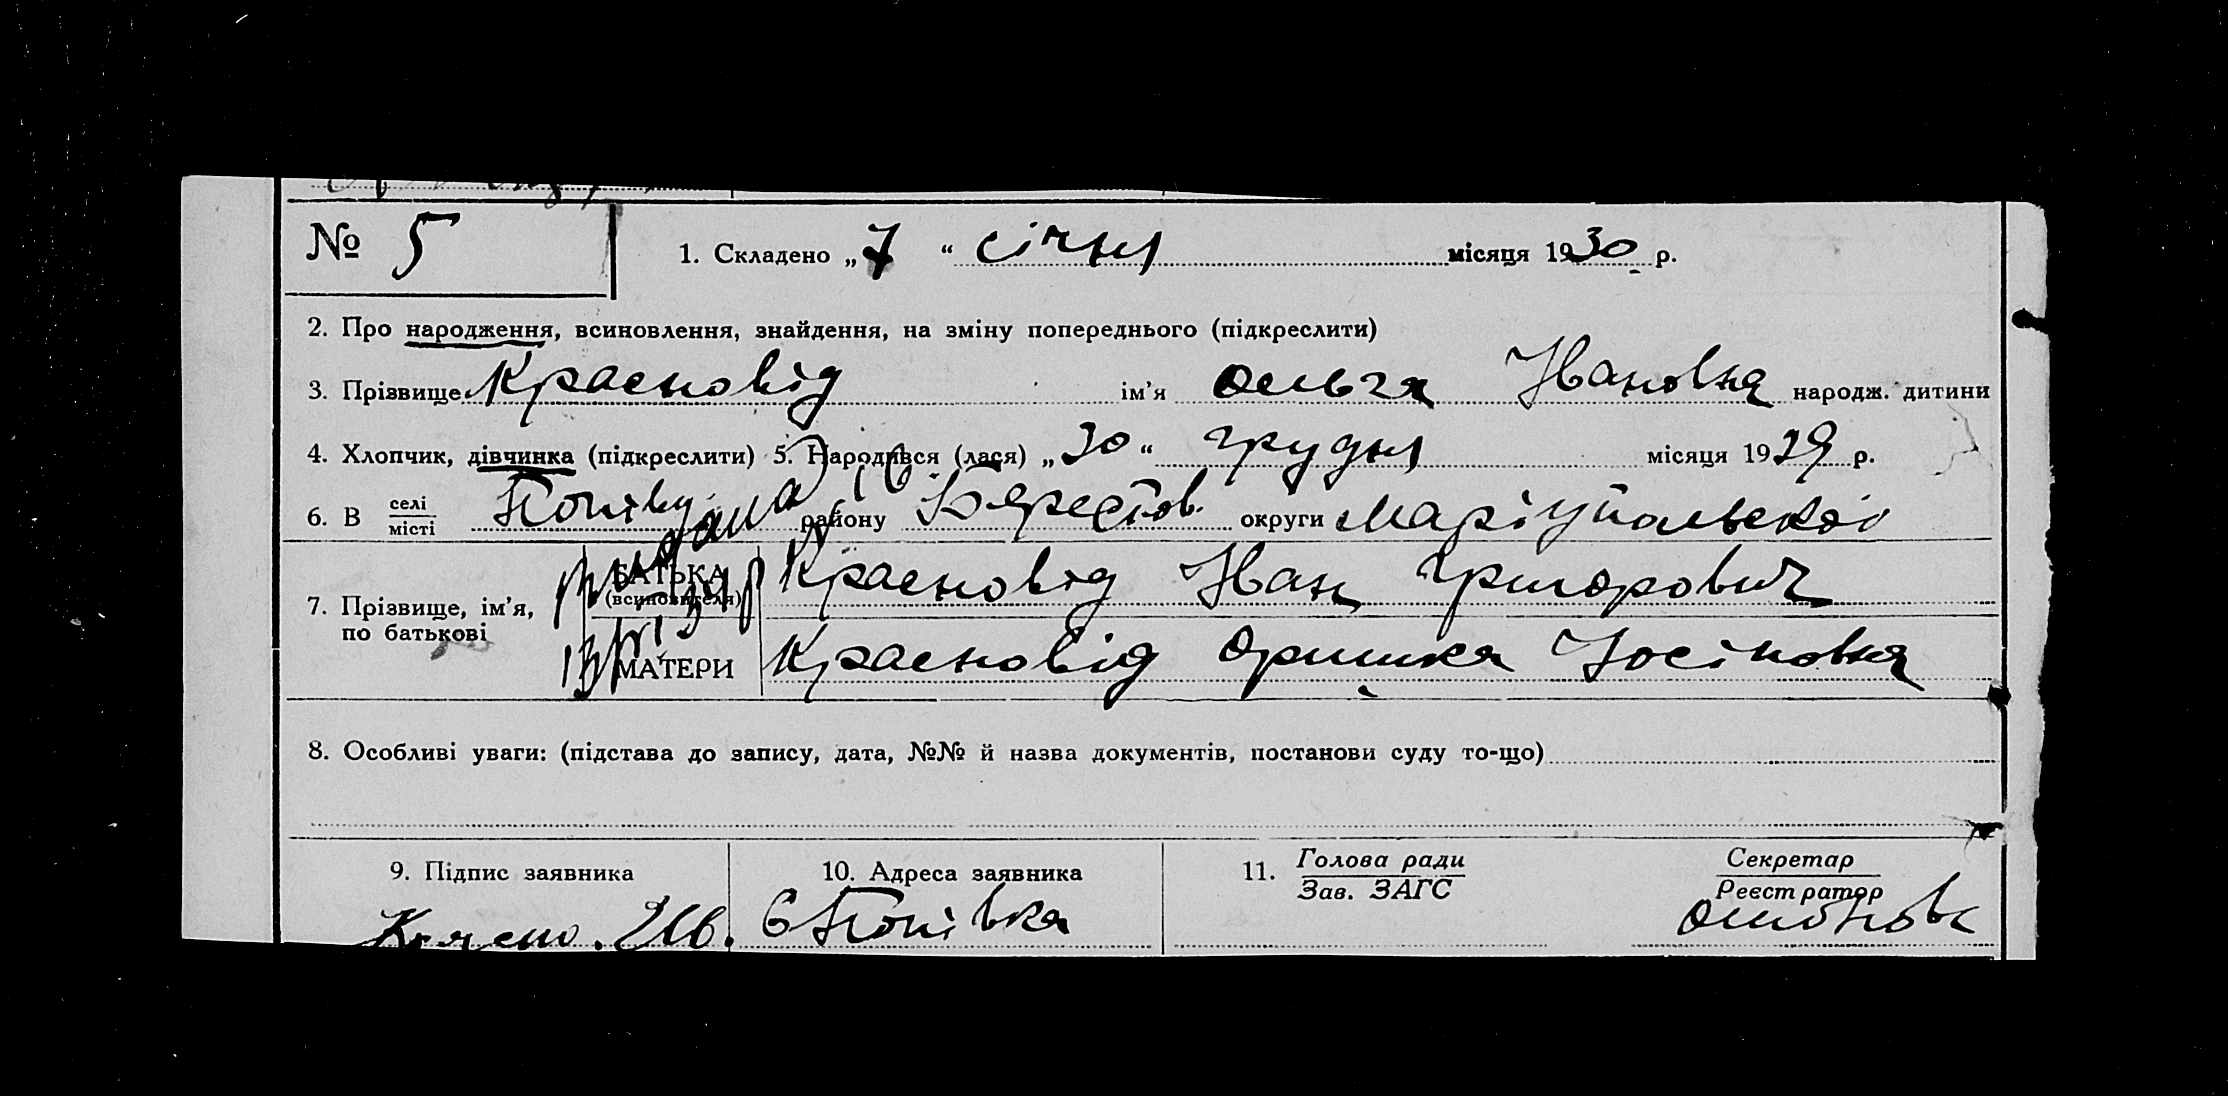 № 5
1. Складено „7“ січня місяця 1930 р.
2. Про народження, всиновлення, знайдення, на зміну попереднього (підкреслити)
3. Прізвище Красновід ім’я Ольга Івановна народж. дитини
4. Хлопчик, дівчинка (підкреслити) 5. Народився (лася) „30“ грудня місяця 1929 р.
6. В селі / місті Попівку району Берестов. округи Маріупольської
7. Прізвище, ім’я, по батькові
БАТЬКА (всиновителя) Красновід Іван Григорович
МАТЕРИ Красновід Оришка Йосіповна
8. Особливі уваги: (підстава до запису, дата, №№ й назва документів, постанови суду то-що)
9. Підпис заявника 10. Адреса заявника 11. Голова ради / Зав. ЗАГС Секретар / Реєстратор
с Попівка